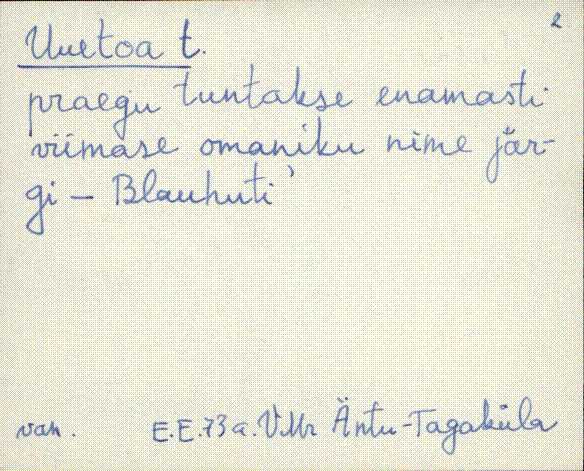 2
Uuetoa t.
praegu tuntakse enamasti
viimase omaniku nime jär-
gi – Blauhuti'
van. E.E.73a. V.Mr Äntu-Tagaküla